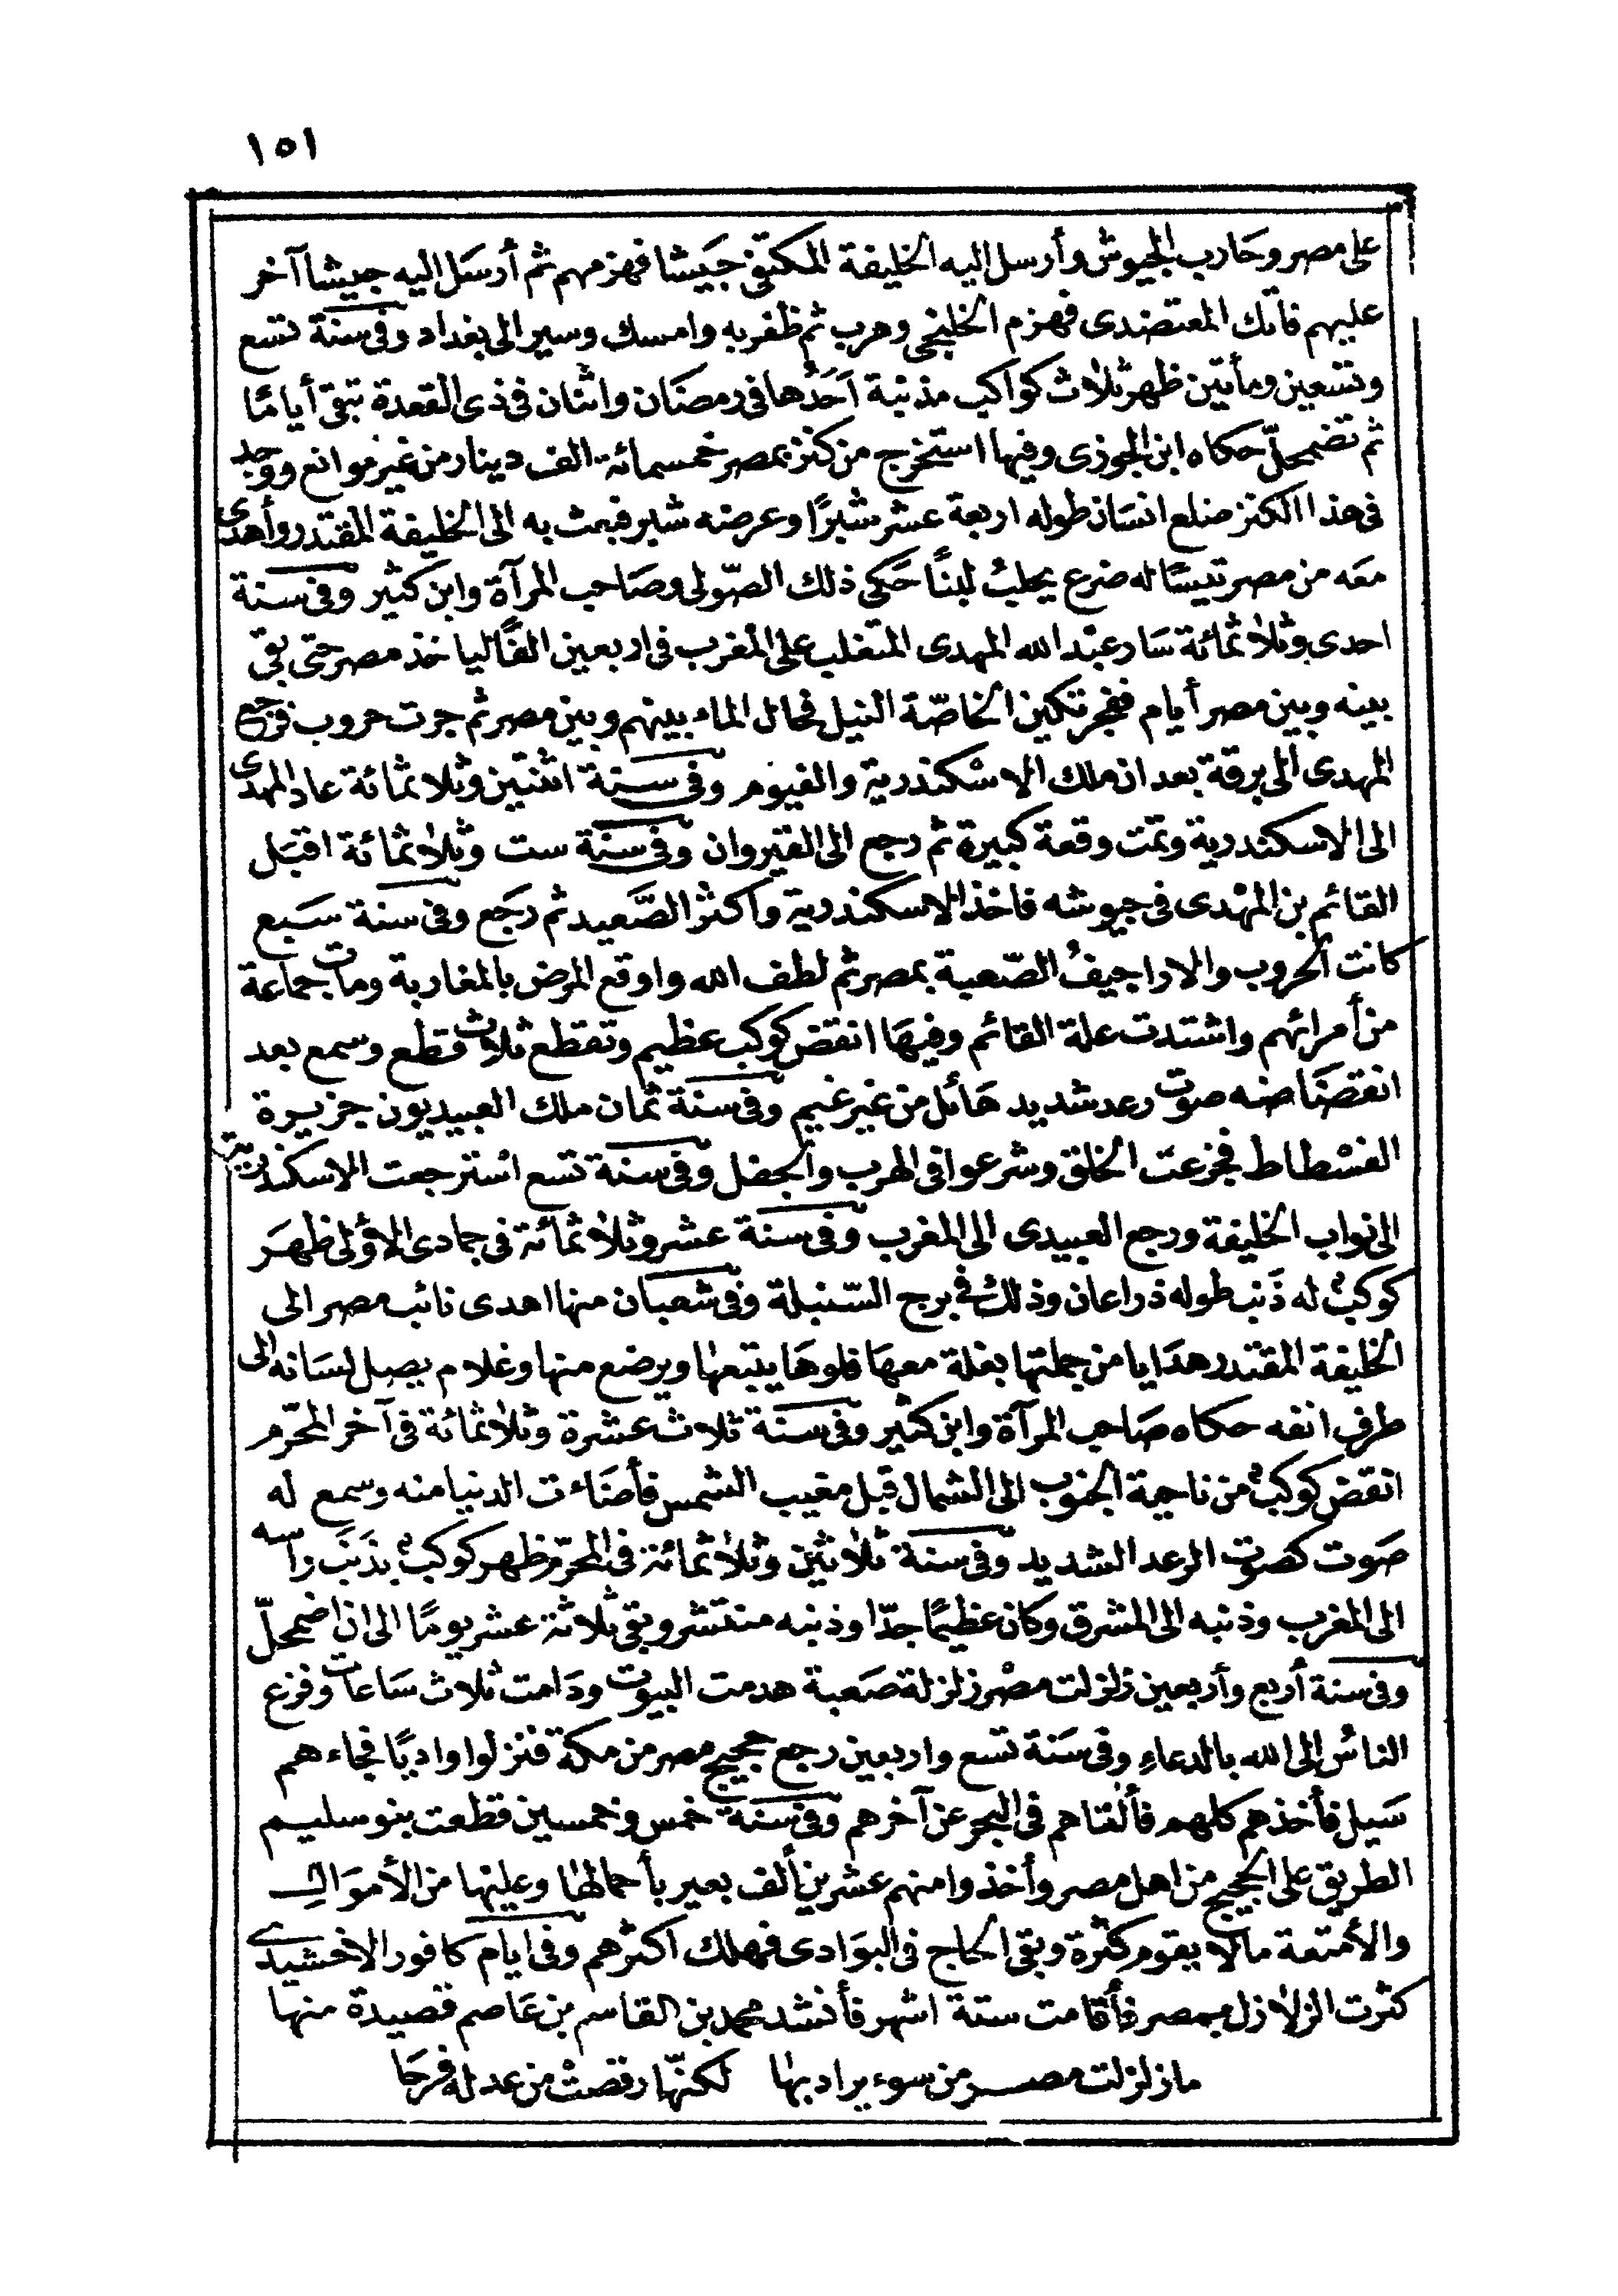 ١٥١
على مصر وحارب الجيوش وأرسل اليه الخليفة المكتفى جيشا فهزمهم ثم أرسل اليه جيشا آخر
عليهم فاتك المعتضدى فهزم الخلنجى وهرب ثم ظفر به وامسك وسير الى بغداد وفى سنة تسع
وتسعين ومأتين ظهر ثلاث كواكب مذنبة أحدها فى رمضان واثنان فى ذى القعدة تبقى أياما
ثم تضمحل حكاه ابن الجوزى وفيها استخرج من كنز بمصر خمسمائة الف دينار من غير موانع ووجد
فى هذا الكنز ضلع انسان طوله اربعة عشر شبرًا وعرضه شبر فبعث به الى الخليفة المقتدر وأهدى
معه من مصر تيسًا له ضرع يحلبُ لبنًا حكى ذلك الصّولى وصاحب المرآة وابن كثير وفى سنة
احدى وثلاثمائة سار عبد الله المهدى المتغلب على المغرب فى اربعين الفًا ليأخذ مصر حتى بقى
بينه وبين مصر أيام ففجر تكين الخاصّة النيل فحال الماء بينهم وبين مصر ثم جرت حروب فرجع
المهدى الى برقة بعد ان ملك الاسكندرية والفيوم وفى سنة اثنتين وثلاثمائة عاد المهدى
الى الاسكندرية وتمت وقعة كبيرة ثم رجع الى القيروان وفى سنة ست وثلاثمائة اقبل
القائم بن المهْدى فى جيوشه فاخذ الاسكندرية وأكثر الصَّعيد ثم رجع وفى سنة سبع
كانت الحروب والاراجيفُ الصّعبة بمصر ثم لطف الله واوقع المرض بالمغاربة ومات جماعة
من أمرائهم واشتدت علة القائم وفيها انقض كوكب عظيم وتقطع ثلاث قطع وسمع بعد
انقضاضه صوت رعد شديد هائل من غير غيم وفى سنة ثمان ملك العبيديون جزيرة
الفسْطاط فجزعت الخلق وشرعوا فى الهرب والجفل وفى سنة تسع استرجعت الاسكندرية
الى نواب الخليفة ورجع العبيدى الى المغرب وفى سنة عشر وثلاثمائة فى جمادى الاولى ظهر
كوكبٌ له ذَنب طوله ذراعان وذلك فى برج السّنبلة وفى شعبان منها اهدى نائب مصر الى
الخليفة المقتدر هدايا من جملتها بغلة معها فلوها يتبعها ويرضع منها وغلام يصل لسانه الى
طرف انفه حكاه صاحب المرآة وابن كثير وفى سنة ثلاث عشرة وثلاثمائة فى آخر المحرّم
انقض كوكبٌ من ناحية الجنوب الى الشمال قبل مغيب الشمس فأضاءت الدنيا منه وسمع له
صوت كصوت الرعد الشديد وفى سنة ثلاثين وثلاثمائة فى المحرّم ظهر كوكبٌ بذَنَب راسه
الى المغرب وذنبه الى المشرق وكان عظيمًا جدّا وذنبه منتشر وبقى ثلاثة عشر يومًا الى ان اضمحلّ
وفى سنة أربع وأربعين زلزلت مصْر زلزلة صَعبة هدمت البيوت ودامت ثلاث ساعات وفزع
الناسُ الى الله بالدعاءِ وفى سنة تسع واربعين رجع حجيج مصر من مكة فنزلوا واديًا فجاءهم
سيل فأخذهم كلهم فألقاهم فى البحر عن آخرهم وفى سنة خمس وخمسين قطعت بنو سليم
الطريق على الحجيج من اهل مصر وأخذوا منهم عشرين ألف بعير بأحمالها وعليها من الأموال
والأمتعة ما لا يقوم كثرة وبقى الحاج فى البوادى فهلك أكثرهم وفى ايام كافور الاخشيدى
كثرت الزلازل بمصر فأقامت ستة اشهر فأنشد محمد بن القاسم بن عاصم قصيدة منها
ما زلزلت مصر من سوء يراد بها لكنّها رقصتْ من عدله فرحا